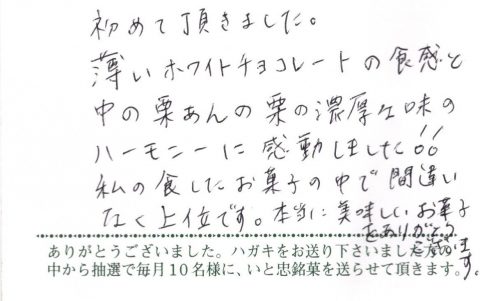 初めて頂きました。
薄いホワイトチョコレートの食感と
中の栗あんの栗の濃厚な味の
ハーモニーに感動しました!!
私の食したお菓子の中で間違い
なく上位です。本当に美味しいお菓子
をありがとう
ございます。
ありがとうございました。ハガキをお送り下さいました方の
中から抽選で毎月10名様に、いと忠銘菓を送らせて頂きます。